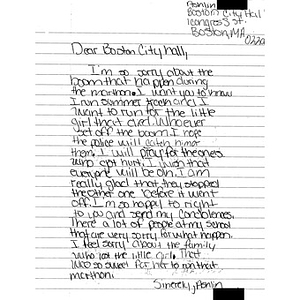 Boston City Hall
Boston, MA
Dear Boston City hall,
I'm so sorry about the
boom that happen during
the marthon. I want you to know
I ran summer track and I
want to run for the little
girl that died. Whoever
set off the boom I hope
the police will catch him or
them. I will pray for the ones
who got hurt. I wish that
everyone will be ok. I am
really glad that they stopped
the other one before it went
off. I'm so happy to right
to you and send my condolences.
There a lot of people at my school
that are very sorry for what happen.
I feel sorry about the family
who lost the little girl. That
was so sweet for her to run that
marthon.
Sincerly,